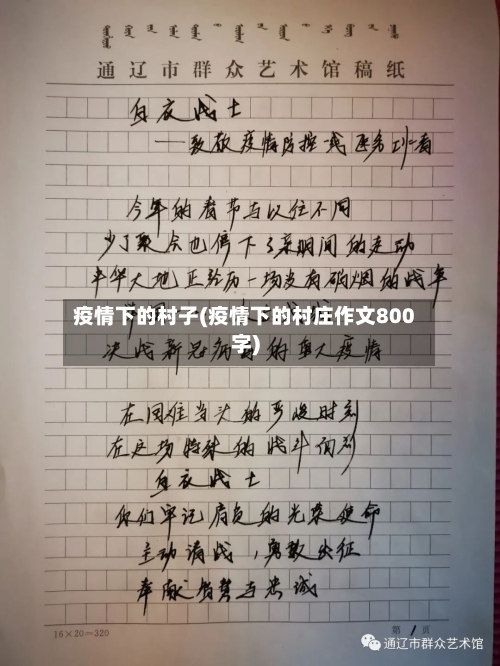 通辽市群众艺术馆稿纸
白衣战士
——致敬疫情防控一线医务工作者
今年的春节与以往不同
少了聚会也停下了亲朋间的走动
中华大地正经历一场没有硝烟的战争
疫情下的村子(疫情下的村庄作文800
字)
决战新冠病毒的重大疫情
在国难当头的严峻时刻
在这场特殊的战斗面前
白衣战士
你们牢记肩负的光荣使命
主动请战，勇敢出征
奉献智慧与忠诚
16×20=320
第1页
通辽市群众艺术馆